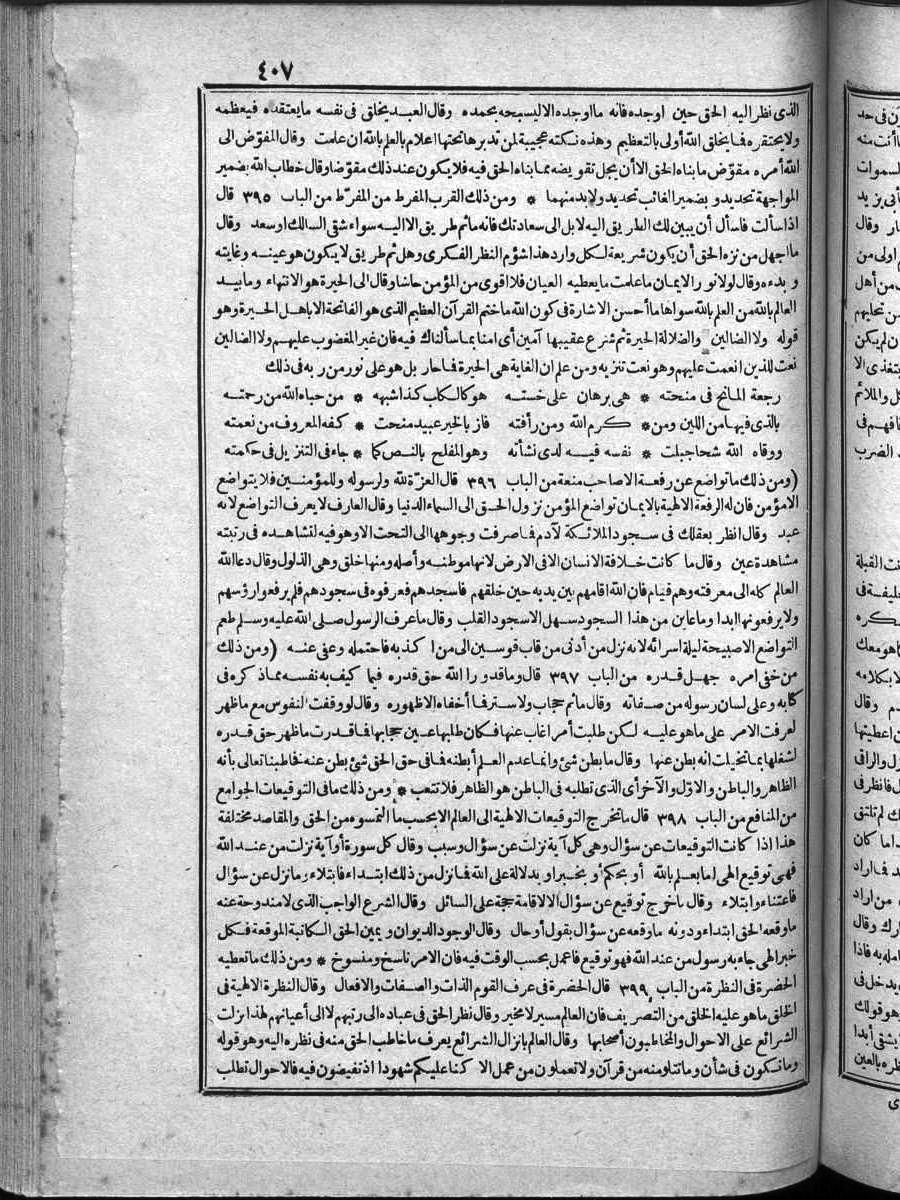 ٤٠٧
الذى نظر اليه الحق حين أوجده فانه ما أوجده الا ليسبحه بحمده وقال العبد يخلق فى نفسه ما يعتقده فيعظمه
ولا يحتقره فما يخلق الله أولى بالتعظيم وهذه نكتة عجيبة لمن تدبرها تحتها اعلام بالعلم بالله ان علمت وقال المفوّض الى
الله أمره مفوّض ما بناه الحق الا أن يجعل تفويضه مما بناه الحق فيه فلا يكون عند ذلك مفوّضا وقال خطاب الله بضمير
المواجهة تحديد وبضمير الغائب تحديد ولا بد منهما * ومن ذلك القرب المفرط من المفرّط من الباب ٣٩٥ قال
اذا سألت فاسأل أن يبين لك الطريق اليه لا بل الى سعادتك فانه ما ثم طريق الا اليه سواء شقى السالك أو سعد وقال
ما اجهل من نزه الحق أن يكون شريعة لكل وارد هذا شؤم النظر الفكرى وهل ثم طريق لا يكون هو عينه وغايته
وبدءه وقال لولا نور الايمان ما علمت ما يعطيه العيان فلا اقوى من المؤمن حاشا وقال الى الحيرة هو الانتهاء وما بيد
العالم بالله من العلم بالله سواها ما أحسن الاشارة فى كون الله ما ختم القرآن العظيم الذى هو الفاتحة الا بأهل الحيرة وهو
قوله ولا الضالين والضلالة الحيرة ثم شرع عقيبها آمين أى امنا بما سألناك فيه فان غير المغضوب عليهم ولا الضالين
نعت للذين انعمت عليهم وهو نعت تنزيه ومن علم ان الغاية هى الحيرة فما حار بل هو على نور من ربه فى ذلك
رجعة المانح فى منحته * هى برهان على خسته هو كالكلب كذا شبهه * من حباه الله من رحمته
بالذى فيها من اللين ومن * كرم الله ومن رأفته فاز بالخير عبيد منحت * كفه المعروف من نعمته
ووقاه الله شحا جبلت * نفسه فيه لدى نشأته وهو المفلح بالنص كما * جاء فى التنزيل فى حكمته
(ومن ذلك ما تواضع عن رفعة الا صاحب منعة من الباب ٣٩٦ قال العزة لله ولرسوله وللمؤمنين فلا يتواضع
الا مؤمن فان له الرفعة الالهية بالايمان تواضع المؤمن نزول الحق الى السماء الدنيا وقال العارف لا يعرف التواضع لانه
عبد وقال انظر بعقلك فى سجود الملائكة لآدم فما صرفت وجوهها الى التحت الا وهو فيه لتشاهده فى رتبته
مشاهدة عين وقال ما كانت خلافة الانسان الا فى الارض لانها موطنه وأصله ومنها خلق وهى الذلول وقال دعا الله
العالم كله الى معرفته وهم قيام فان الله اقامهم بين يديه حين خلقهم فاسجدهم فعرفوه فى سجودهم فلم يرفعوا رؤسهم
ولا يرفعونها ابدا وما عاين من هذا السجود سهل الا سجود القلب وقال ما عرف الرسول صلى الله عليه وسلم طعم
التواضع الا صبيحة ليلة اسرائه لانه نزل من أدنى من قاب قوسين الى من اكذبه فاحتمله وعفى عنه (ومن ذلك
من خفى امره جهل قدره من الباب ٣٩٧ قال وما قدروا الله حق قدره فيما كيف به نفسه مما ذكره فى
كتابه وعلى لسان رسوله من صفاته وقال ما ثم حجاب ولا ستر فما أخفاه الا ظهوره وقال لو وقفت النفوس مع ما ظهر
لعرفت الامر على ما هو عليه لكن طلبت أمرا غاب عنها فكان طلبها عين حجابها فما قدرت ما ظهر حق قدره
لشغلها بما تخيلت انه بطن عنها وقال ما بطن شئ وانما عدم العلم أبطنه فما فى حق الحق شئ بطن عنه فخاطبنا تعالى بأنه
الظاهر والباطن والاوّل والآخر أى الذى تطلبه فى الباطن هو الظاهر فلا تتعب * ومن ذلك ما فى التوقيعات الجوامع
من المنافع من الباب ٣٩٨ قال ما تخرج التوقيعات الالهية الى العالم الا بحسب ما التمسوه من الحق والمقاصد مختلفة
هذا اذا كانت التوقيعات عن سؤال وهى كل آية نزلت عن سؤال وسبب وقال كل سورة أو آية نزلت من عند الله
فهى توقيع الهى اما بعلم بالله أو بحكم أو بخبر أو بدلالة على الله فما نزل من ذلك ابتداء فابتلاء وما نزل عن سؤال
فاعتناء وابتلاء وقال ما خرج توقيع عن سؤال الا لاقامة حجة على السائل وقال الشرع الواجب الذى لا مندوحة عنه
ما وقعه الحق ابتداء ودونه ما وقعه عن سؤال بقول أو حال وقال الوجود الديوان ويمين الحق الكاتبة الموقعة فكل
خبر الهى جاء به رسول من عند الله فهو توقيع فاعمل بحسب الوقت فيه فان الامر ناسخ ومنسوخ * ومن ذلك ما تعطيه
الحضرة فى النظرة من الباب ٣٩٩ قال الحضرة فى عرف القوم الذات والصفات والافعال وقال النظرة الالهية فى
الخلق ما هو عليه الخلق من التصريف فان العالم مسير لا مخير وقال نظر الحق فى عباده الى رتبهم لا الى أعيانهم لهذا نزلت
الشرائع على الاحوال والمخاطبون أصحابها وقال العالم بانزال الشرائع يعرف ما خاطب الحق منه فى نظره اليه وهو قوله
وما تكون فى شأن وما تتلو منه من قرآن ولا تعملون من عمل الا كنا عليكم شهودا اذ تفيضون فيه فالاحوال تطلب